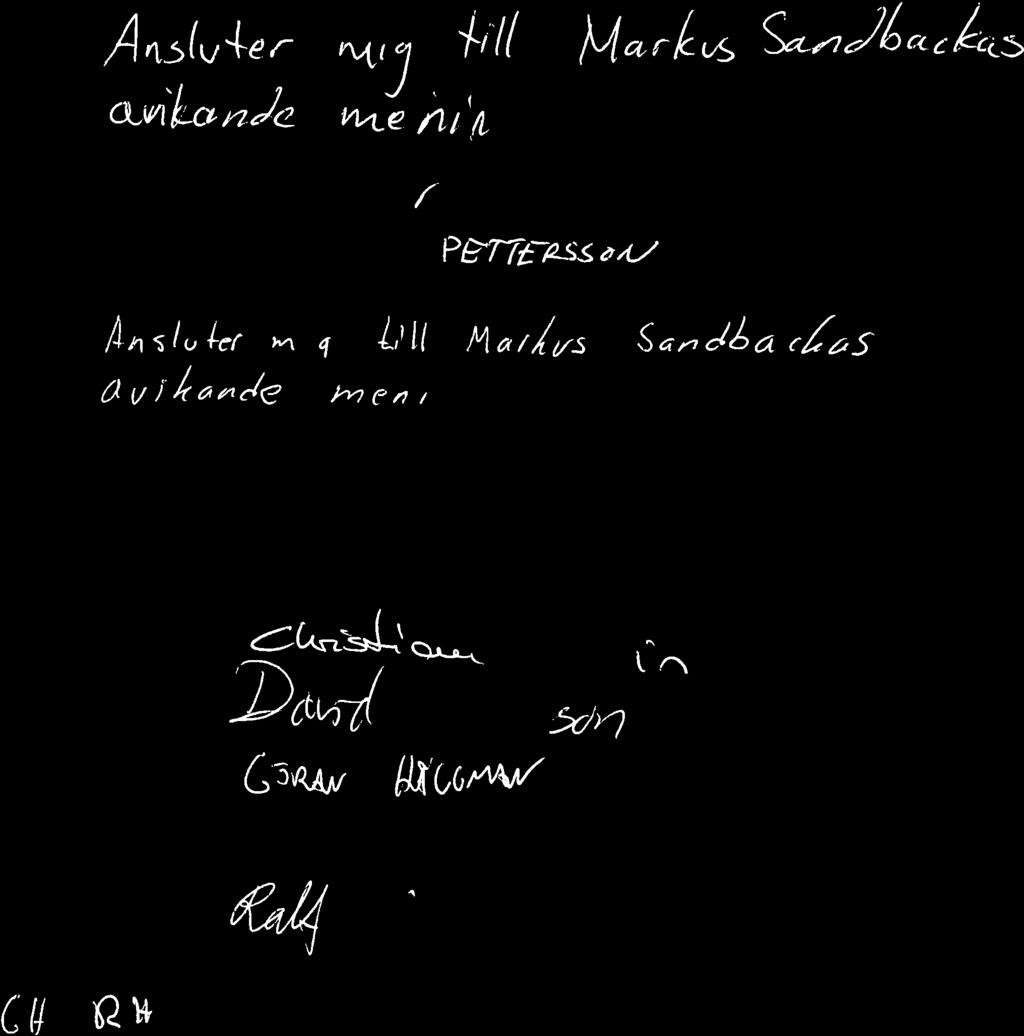 Ansluter mig till Markus Sandbackas
avikande menin
PETTERSSON
Ansluter m g till Markus Sandbackas
avikande meni
Christian in
David son
GÖRAN HÄGGMAN
Ralf
GH RH